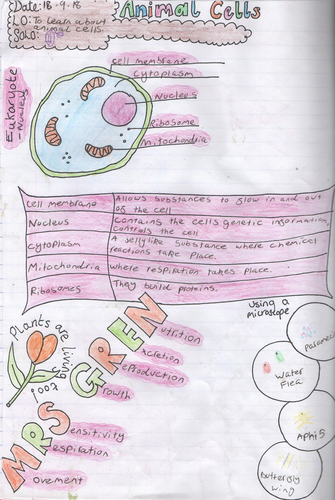 Date: 18-9-18
Animal Cells
LO: To learn about
animal cells.
SOLO:
Eukaryote
- Nucleus
cell membrane
cytoplasm
Nucleus
Ribosome
Mitochondria
Cell membrane Allows substances to flow in and out
of the cell
Nucleus Contains the cells genetic information,
controls the cell
cytoplasm A jellylike substance where chemical
reactions take place.
Mitochondria where respiration takes place.
Ribosomes They build proteins.
Plants are living
too!
MRS GREN
ovement
espiration
ensitivity
rowth
eproduction
xcretion
utrition
using a
microscope
Water
flea
Aphis
Butterfly
wing